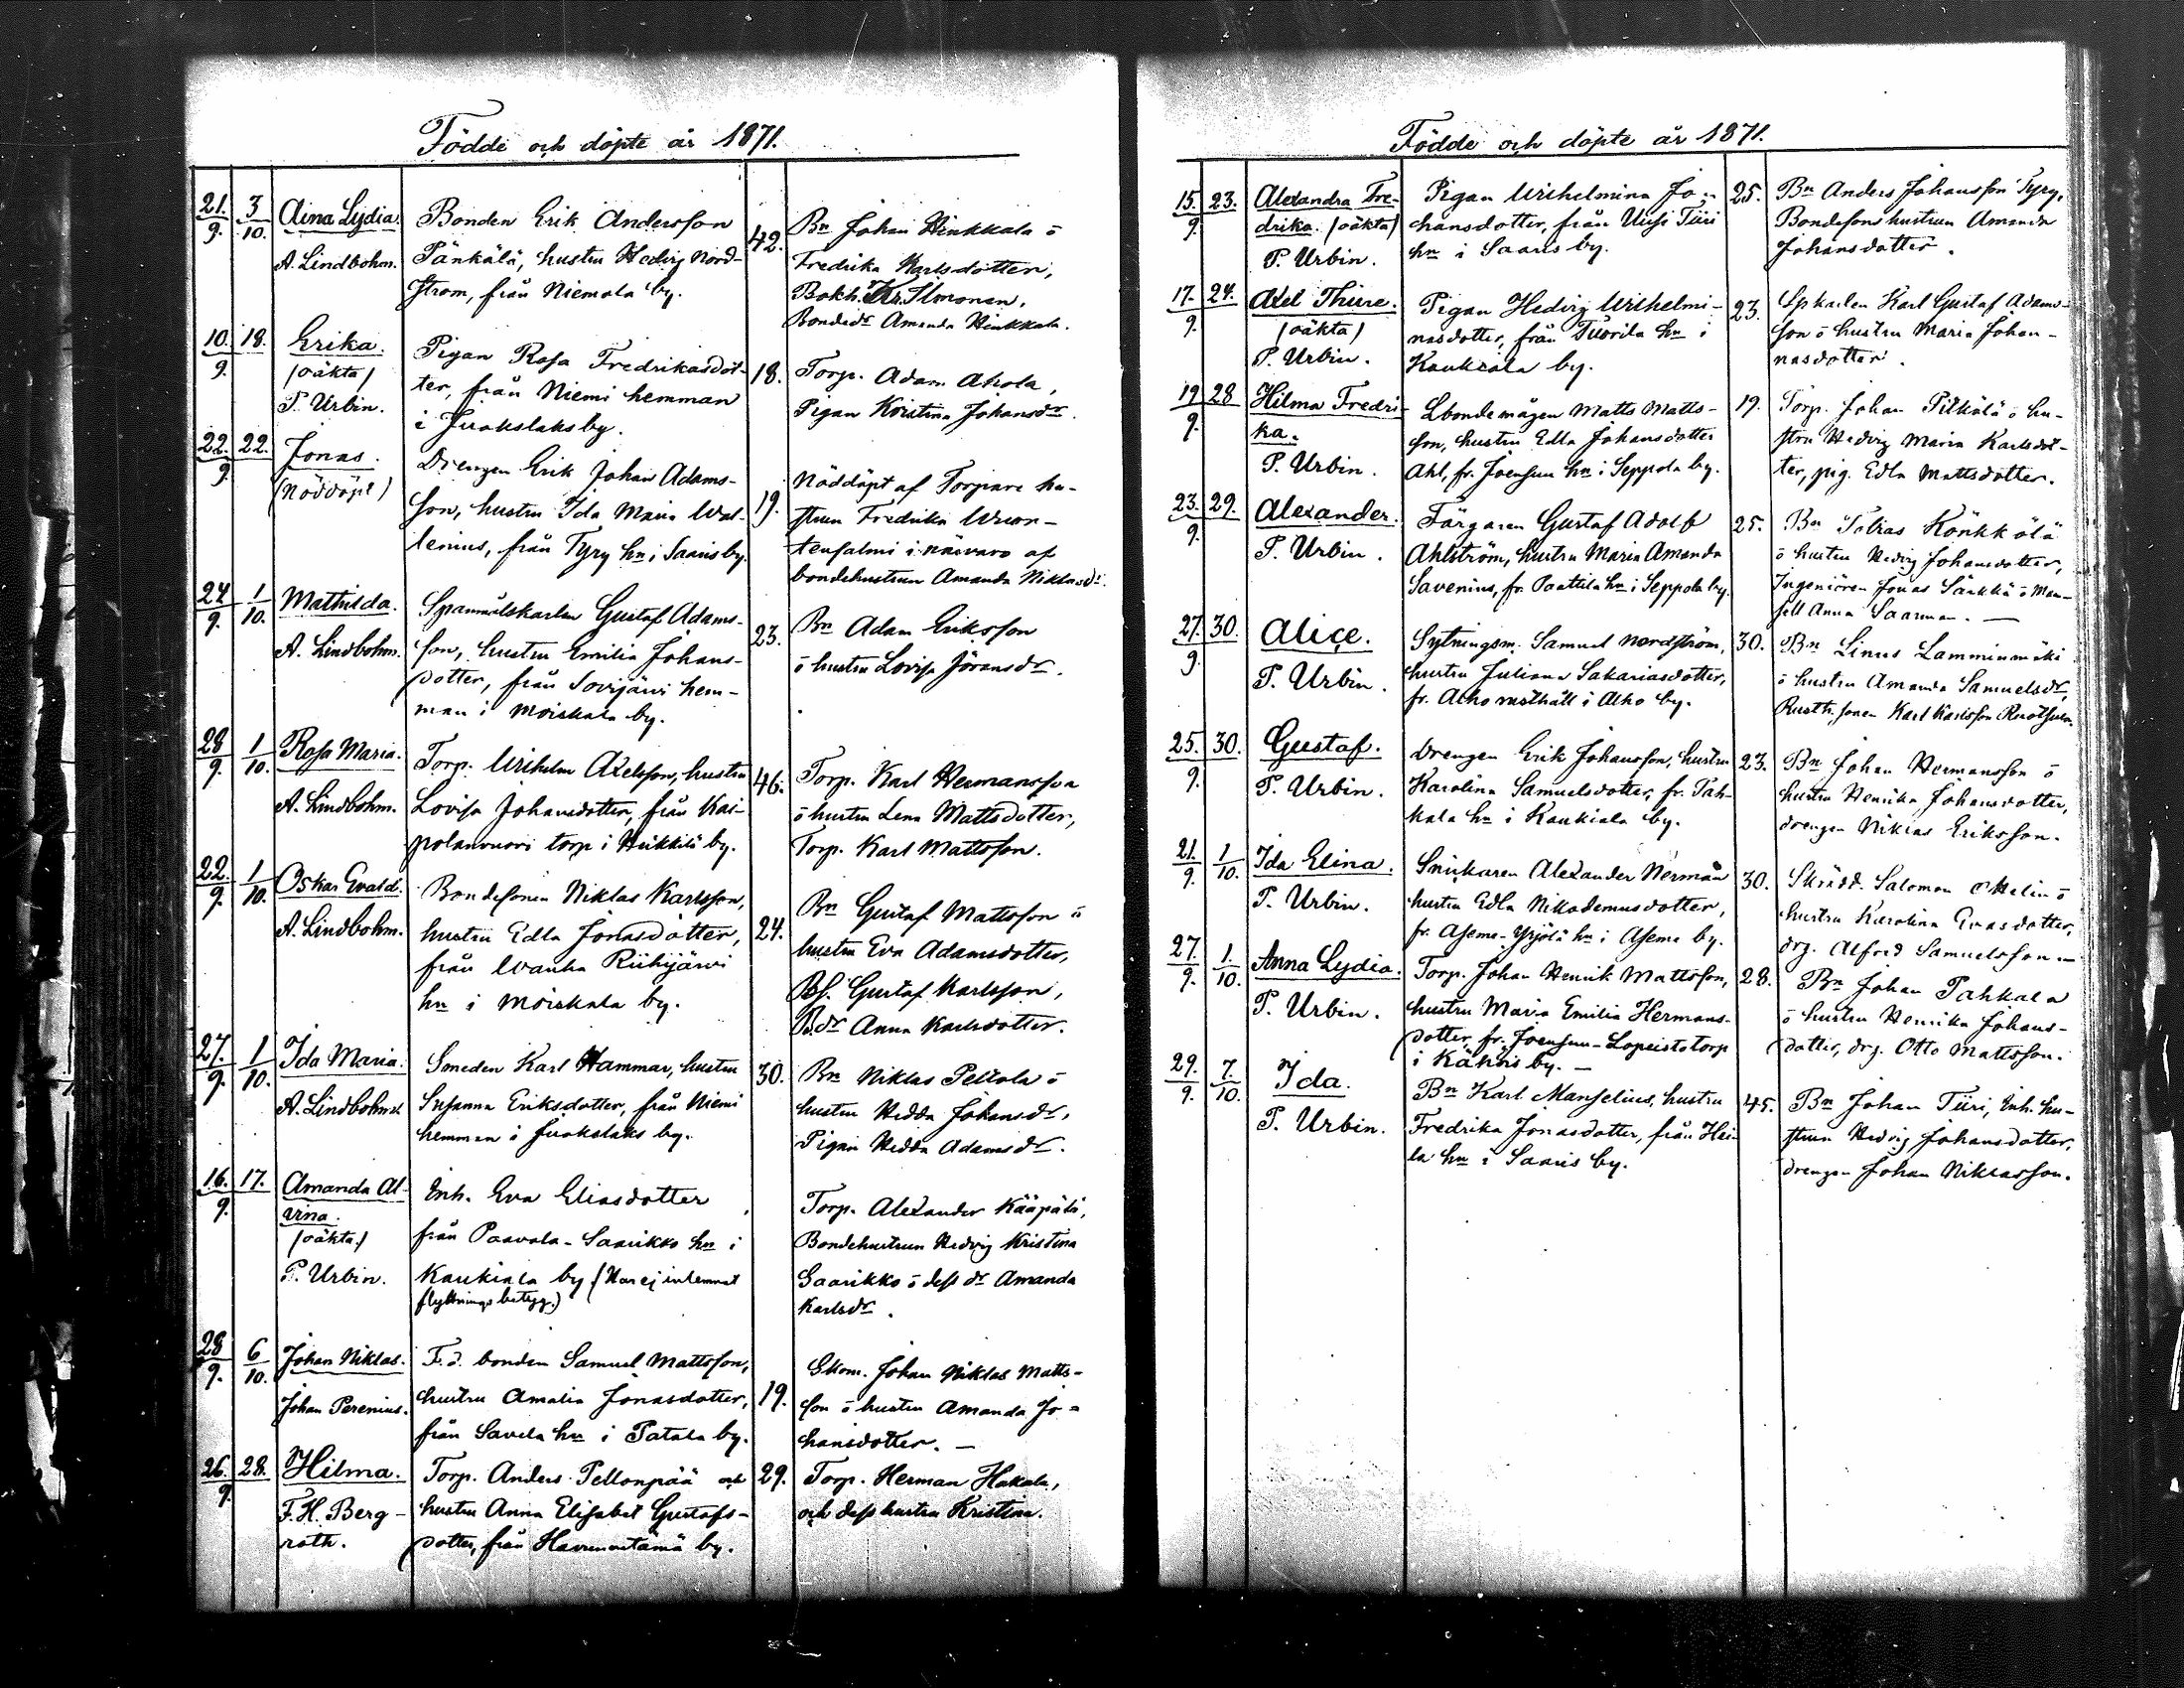 Födde och döpte år 1871.
21. 3 Aina Lydia. Bonden Erik Andersson 42. Bn Johan Hinkkala o
9. 10. A. Lindbohm. Pänkälä, hustru Hedvig Nord- Fredrika Karlsdotter,
ström, från Niemola by. Bokh. Kr. Ilmonen,
Bondedr Amanda Hinkkala.
10. 18. Erika. Pigan Rosa Fredrikasdot- 18. Torp. Adam Ahola,
9. (oäkta) ter, från Niemi hemman Pigan Kristina Johansdr
P. Urbin. i Juokslaks by.
22. 22. Jonas. Drengen Erik Johan Adams- 19. Nöddöpt af Torpare hu-
9. (Nöddöpt) son, hustru Ida Maria Wal- strun Fredrika
lenius, från Tyry hn i Saaris by. i närvaro af
bondehustrun Amanda Niklasdr.
24 1 Mathilda. Spanmålskarlen Gustaf Adams- 23. Bn Adam Eriksson
9. 10. A. Lindbohm. son, hustru Emilia Johans- o hustru Lovisa Göransdr.
dotter, från Sovijärvi hem-
man i Moiskala by.
28 1 Rosa Maria. Torp. Wilhelm Axelsson, hustru 46. Torp. Karl Hermansson
9. 10. A. Lindbohm. Lovisa Johansdotter, från Kai- o hustru Lena Mattsdotter,
polanvuori torp i Heikkilä by. Torp. Karl Mattsson.
22. 1 Oskar Evald. Bondesonen Niklas Karlsson, 24. Bn Gustaf Mattsson o
9. 10. A. Lindbohm. hustru Edla Jonasdotter, hustru Eva Adamsdotter,
från Wanha Riihijärvi Bs. Gustaf Karlsson,
hn i Moiskala by. B.dr Anna Karlsdotter.
27. 1 Ida Maria. Smeden Karl Hammar, hustru 30. Bn Niklas Peltola o
9. 10. A. Lindbohm. Susanna Eriksdotter, från Niemi hustru Hedda Johansdr,
hemman i Juokslaks by. Pigan Hedda Adamsdr.
16. 17. Amanda Al- Inh. Eva Eliasdotter Torp. Alexander Kääpälä,
9. vina. från Paavola-Saarikko hn i Bondehustrun Hedvig Kristina
(oäkta.) Kaukiala by (Har ej inlemnat Saarikko o dess dr Amanda
P. Urbin. flyttningsbetyg.) Karlsdr.
28 6 Johan Niklas. F.d. bonden Samuel Mattsson, 19. Johan Niklas Matts-
9. 10. Johan Perenius. hustru Amalia Jonasdotter, son o hustru Amanda Jo-
från Savela hn i Patala by. hansdotter. —
26. 28. Hilma. Torp. Anders Pellonpää och 29. Torp. Herman Hakala,
9. F. H. Berg- hustru Anna Elisabet Gustafs- och dess hustru Kristina.
roth. dotter, från by.
Födde och döpte år 1871.
15. 23. Alexandra Fre- Pigan Wilhelmina Jo- 25. Bn Anders Johansson Tyry,
9. drika. (oäkta) hansdotter, från Uusi Tiiri Bondesons hustrun Amanda
P. Urbin. hn i Saaris by. Johansdotter.
17. 24. Axel Thure. Pigan Hedvig Wilhelmi- 23. Spkarlen Karl Gustaf Adams-
9. (oäkta) nasdotter, från Tuorila hn i son o hustru Maria Johan-
P. Urbin. Kaukiala by. nasdotter.
19 28 Hilma Fredri- Lbondemågen Matts Matts- 19. Torp. Johan Pitkälä o hu-
9. ka. son, hustru Edla Johansdotter stru Hedvig Maria Karlsdot-
P. Urbin. Ahl, fr. Joensuu hn i Seppola by. ter, pig. Edla Mattsdotter.
23. 29. Alexander. Färgaren Gustaf Adolf 25. Bn Tobias Könkkölä
9. P. Urbin. Ahlström, hustru Maria Amanda o hustru Hedvig Johansdotter,
Savenius, fr. Paattela hn i Seppola by. Ingeniören Jonas Särkkä o Mam-
sell Anna Saarman. —
27. 30. Alice. Sytningsm. Samuel Nordström, 30. Bn Linus Lamminmäki
9. P. Urbin. hustru Juliana Sakariasdotter, o hustru Amanda Samuelsdr,
fr. Alho rusthåll i Alho by. Rusth.sonen Karl Karlsson
25. 30. Gustaf. Drengen Erik Johansson, hustru 23. Bn Johan Hermansson o
9. P. Urbin. Karolina Samuelsdotter, fr. Pah- hustru Henrika Johansdotter,
kala hn i Kaukiala by. drengen Niklas Eriksson.
21. 1 Ida Elina. Snickaren Alexander Nerman 30. Skrädd. Salomon Ahelin o
9. 10. P. Urbin. hustru Edla Nikodemusdotter, hustru Karolina Evasdotter,
fr. Aseme-Yrjölä hn i Aseme by. drg. Alfred Samuelsson. —
27. 1. Anna Lydia. Torp. Johan Henrik Mattsson, 28. Bn Johan Pahkala
9. 10. P. Urbin. hustru Maria Emilia Hermans- o hustru Henrika Johans-
dotter, fr. Joensuu-Lopeisto torp dotter, drg. Otto Mattsson.
i Kähöis by. —
29. 7. Ida. Bn Karl Manselius, hustru 45. Bn Johan Tiiri, Inh. hu-
9. 10. P. Urbin. Fredrika Jonasdotter, från Hei- strun Hedvig Johansdotter,
la hn i Saaris by. drengen Johan Niklasson.